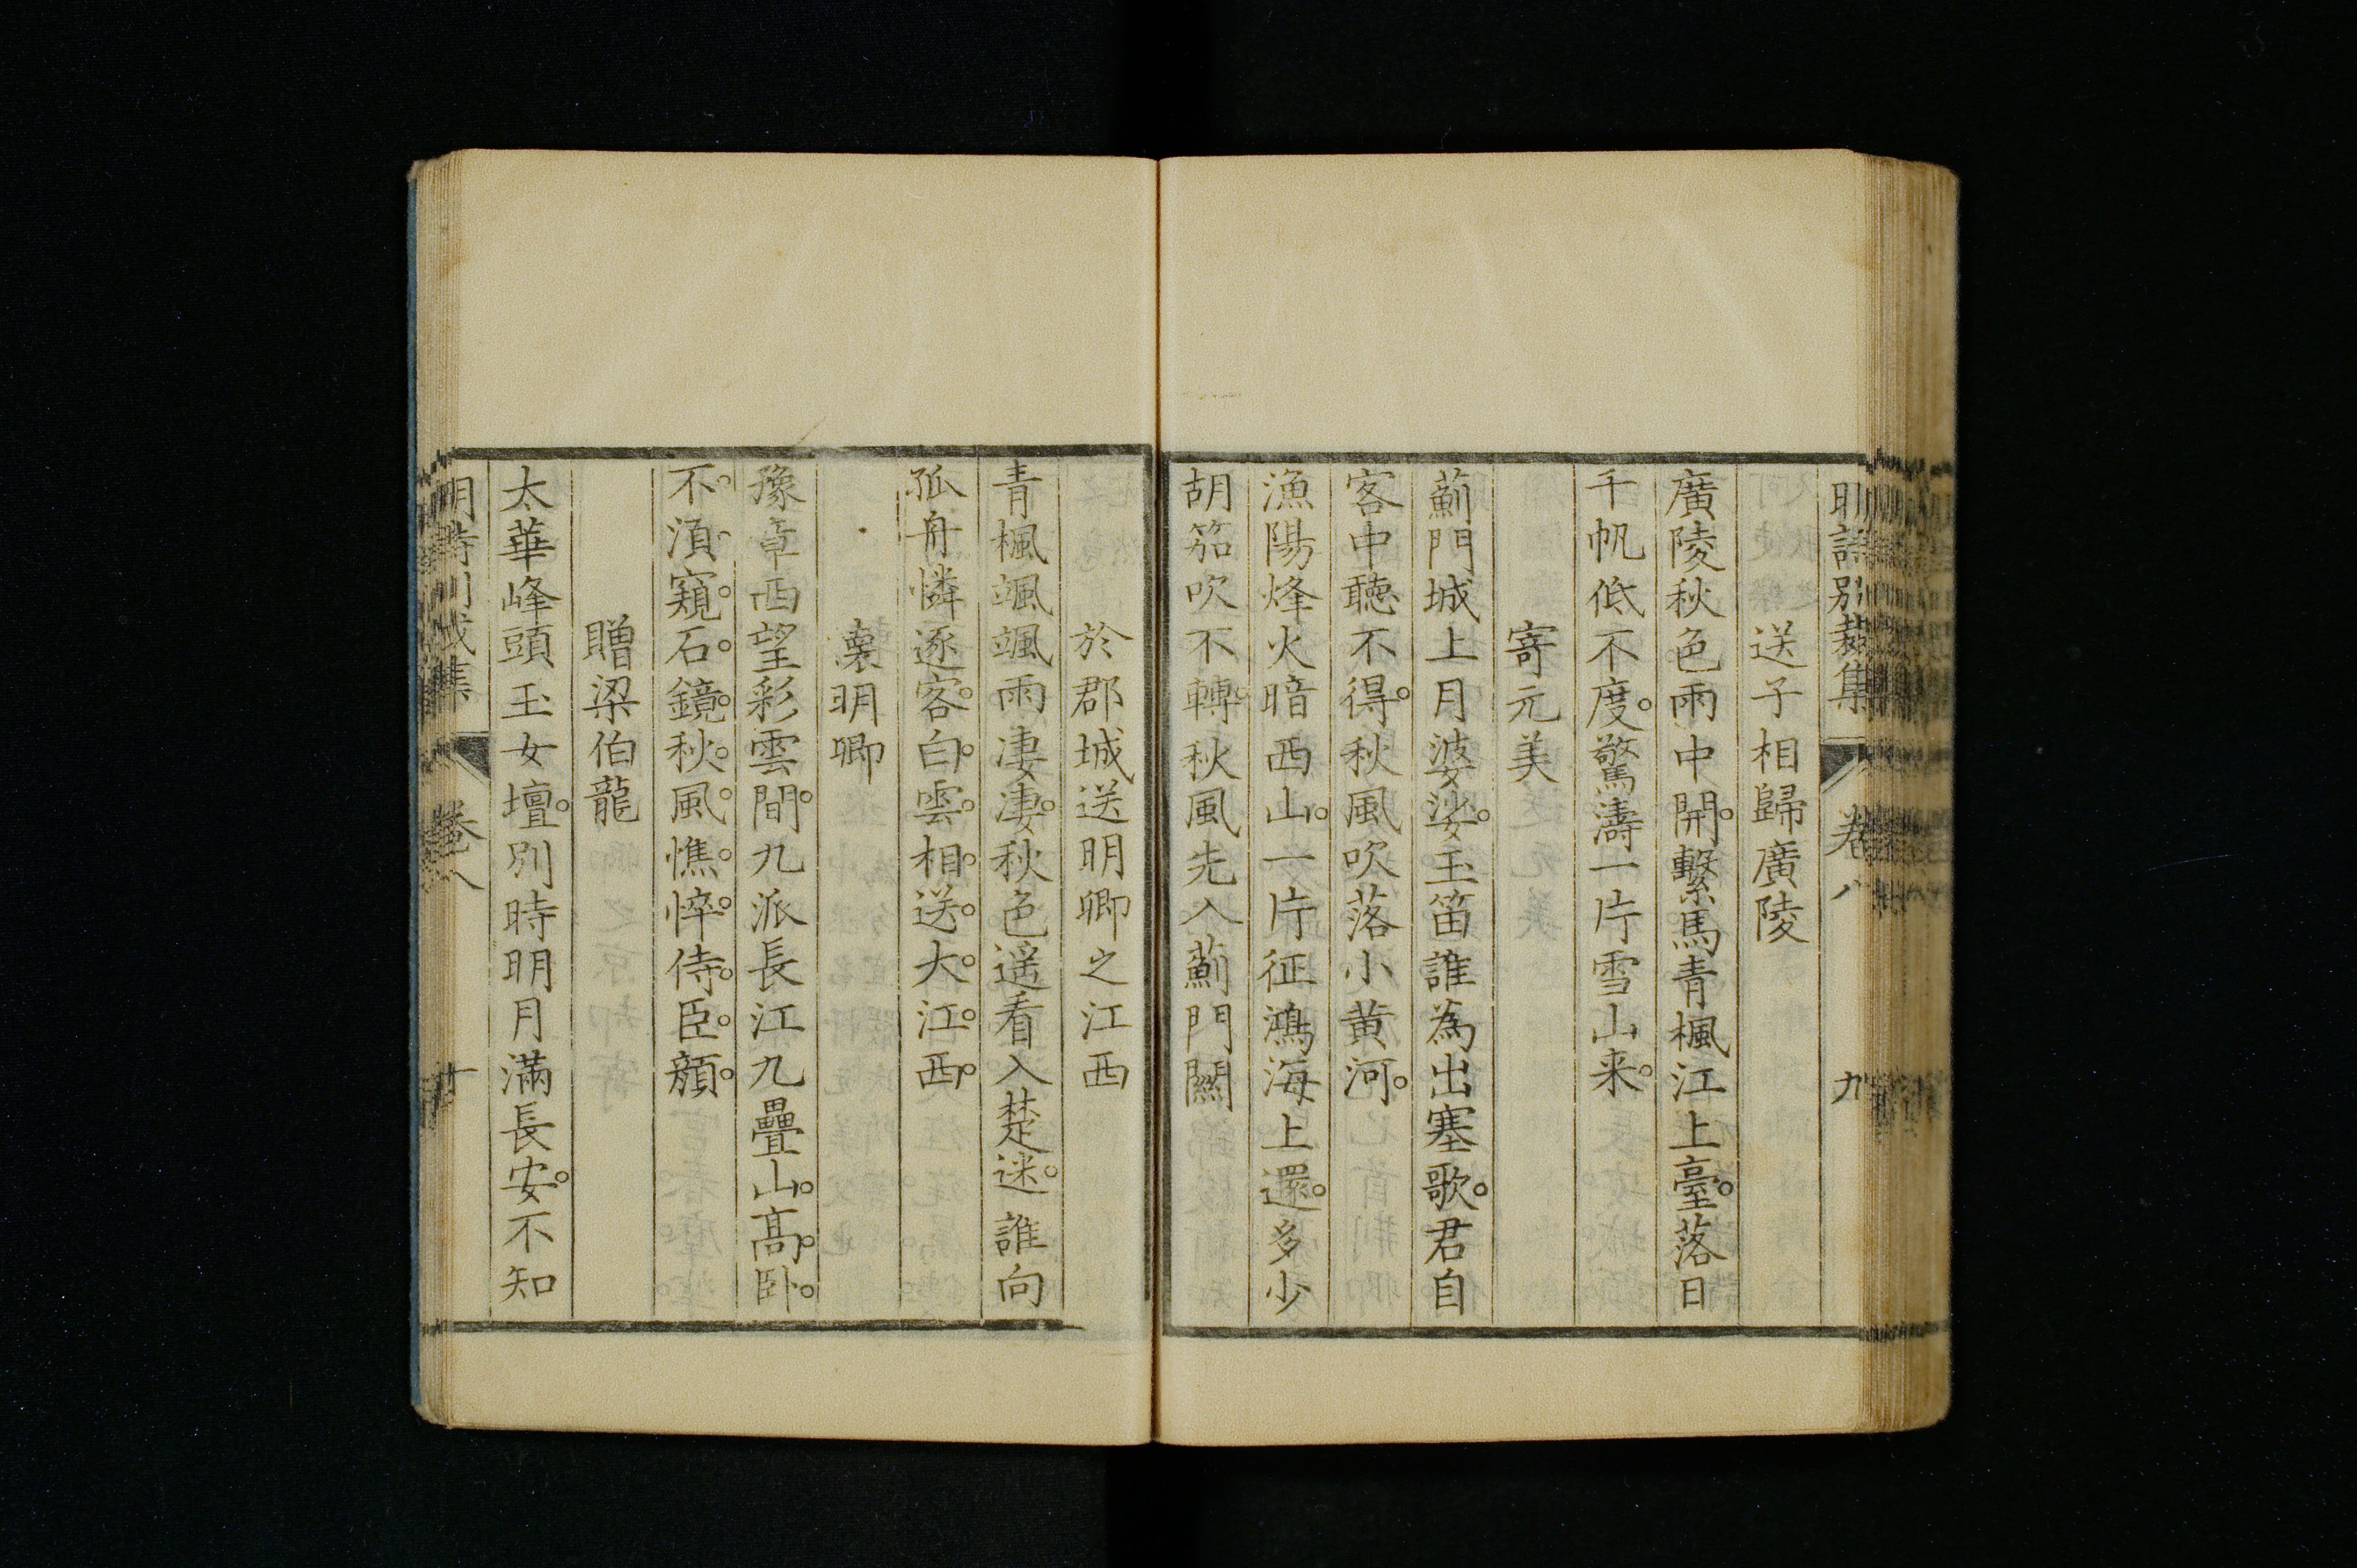 明詩別裁集 卷八 九
送子相歸廣陵
廣陵秋色雨中開。繫馬青楓江上臺。落日
千帆低不度。驚濤一片雪山来。
寄元美
薊門城上月婆娑。玉笛誰為出塞歌。君自
客中聽不得。秋風吹落小黄河。
漁陽烽火暗西山。一片征鴻海上還。多少
胡笳吹不轉。秋風先入薊門關
於郡城送明卿之江西
青楓颯颯雨凄凄。秋色遥看入楚迷。誰向
孤舟憐逐客。白。雲。相。送。大。江。西。
懷明卿
豫章西望彩雲間。九派長江九疊山。高。卧。
不。湏。窺。石。鏡。秋。風。憔。悴。侍。臣。顔。
贈梁伯龍
太華峰頭玉女壇。別時明月滿長安。不知
明詩別裁集 卷八 十